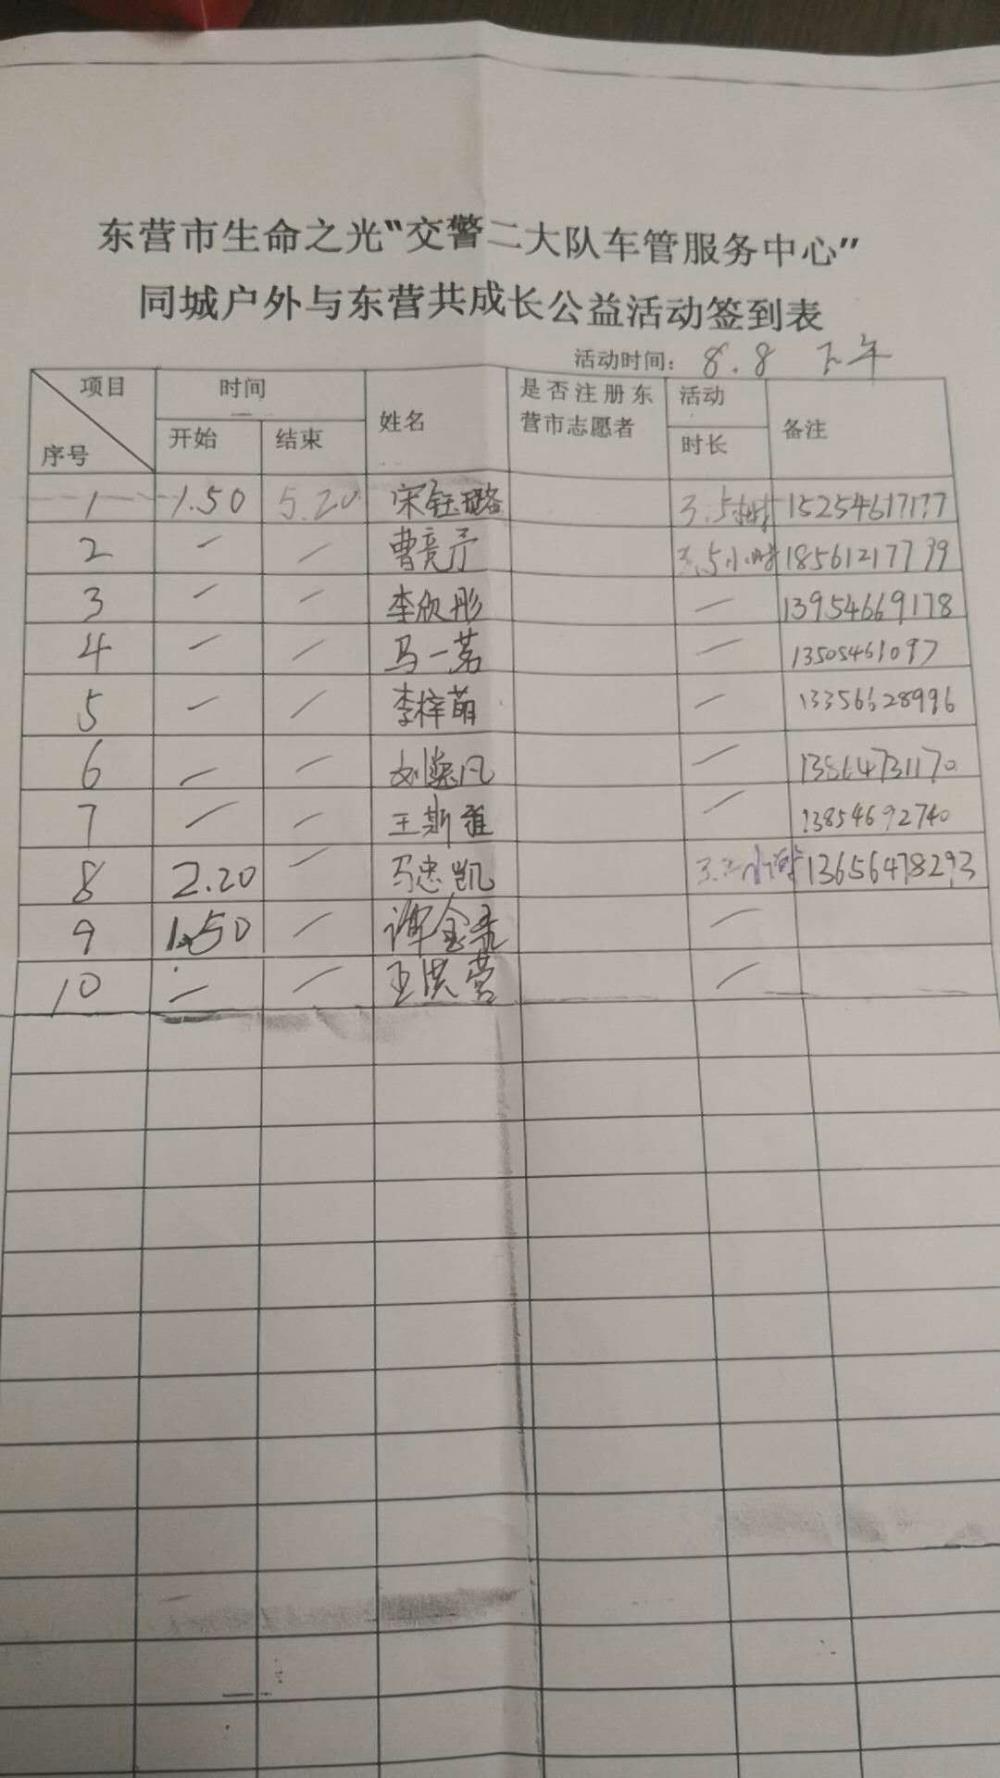 东营市生命之光“交警二大队车管服务中心”
同城户外与东营共成长公益活动签到表
活动时间: 8.8 下午
项目 序号 时间 开始 结束 姓名 是否注册东营市志愿者 活动时长 备注
1 1.50 5.20 宋钰璐 3.5小时 15254617177
2 — — 曹竞予 3.5小时 18561217799
3 — — 李欣彤 — 13954669178
4 — — 马一茗 — 13505461097
5 — — 李梓萌 — 13356628996
6 — — 刘逸凡 — 13864731170
7 — — 王斯雅 — 13854692740
8 2.20 — 马忠凯 小时 13656478293
9 1.50 — 谭金 —
10 — — 王洪营 —